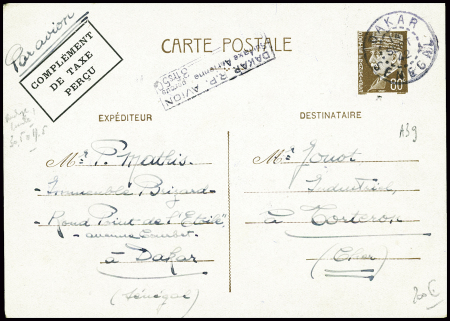 Par avion
COMPLÉMENT
DE TAXE
PERÇU
CARTE POSTALE
DAKAR R.P. AVION
Surtaxe Aérienne
perçue
DAKAR
SENEGAL
80c
EXPÉDITEUR
DESTINATAIRE
A39
Mr P. Mathis
Immeuble Brigard
Rond Point de l'"Etoile"
avenue Courbet
à Dakar
(Sénégal)
Mr Jouot
Industriel,
à Torteron
(Cher)